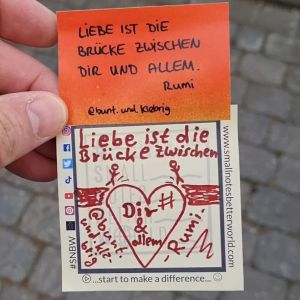 LIEBE IST DIE
BRÜCKE ZWISCHEN
DIR UND ALLEM.
Rumi
@bunt.und.klebrig
Liebe ist die
Brücke zwischen
Dir #
&
allem,
Rumi.
#SNBW
www.smallnotesbetterworld.com
...start to make a difference...